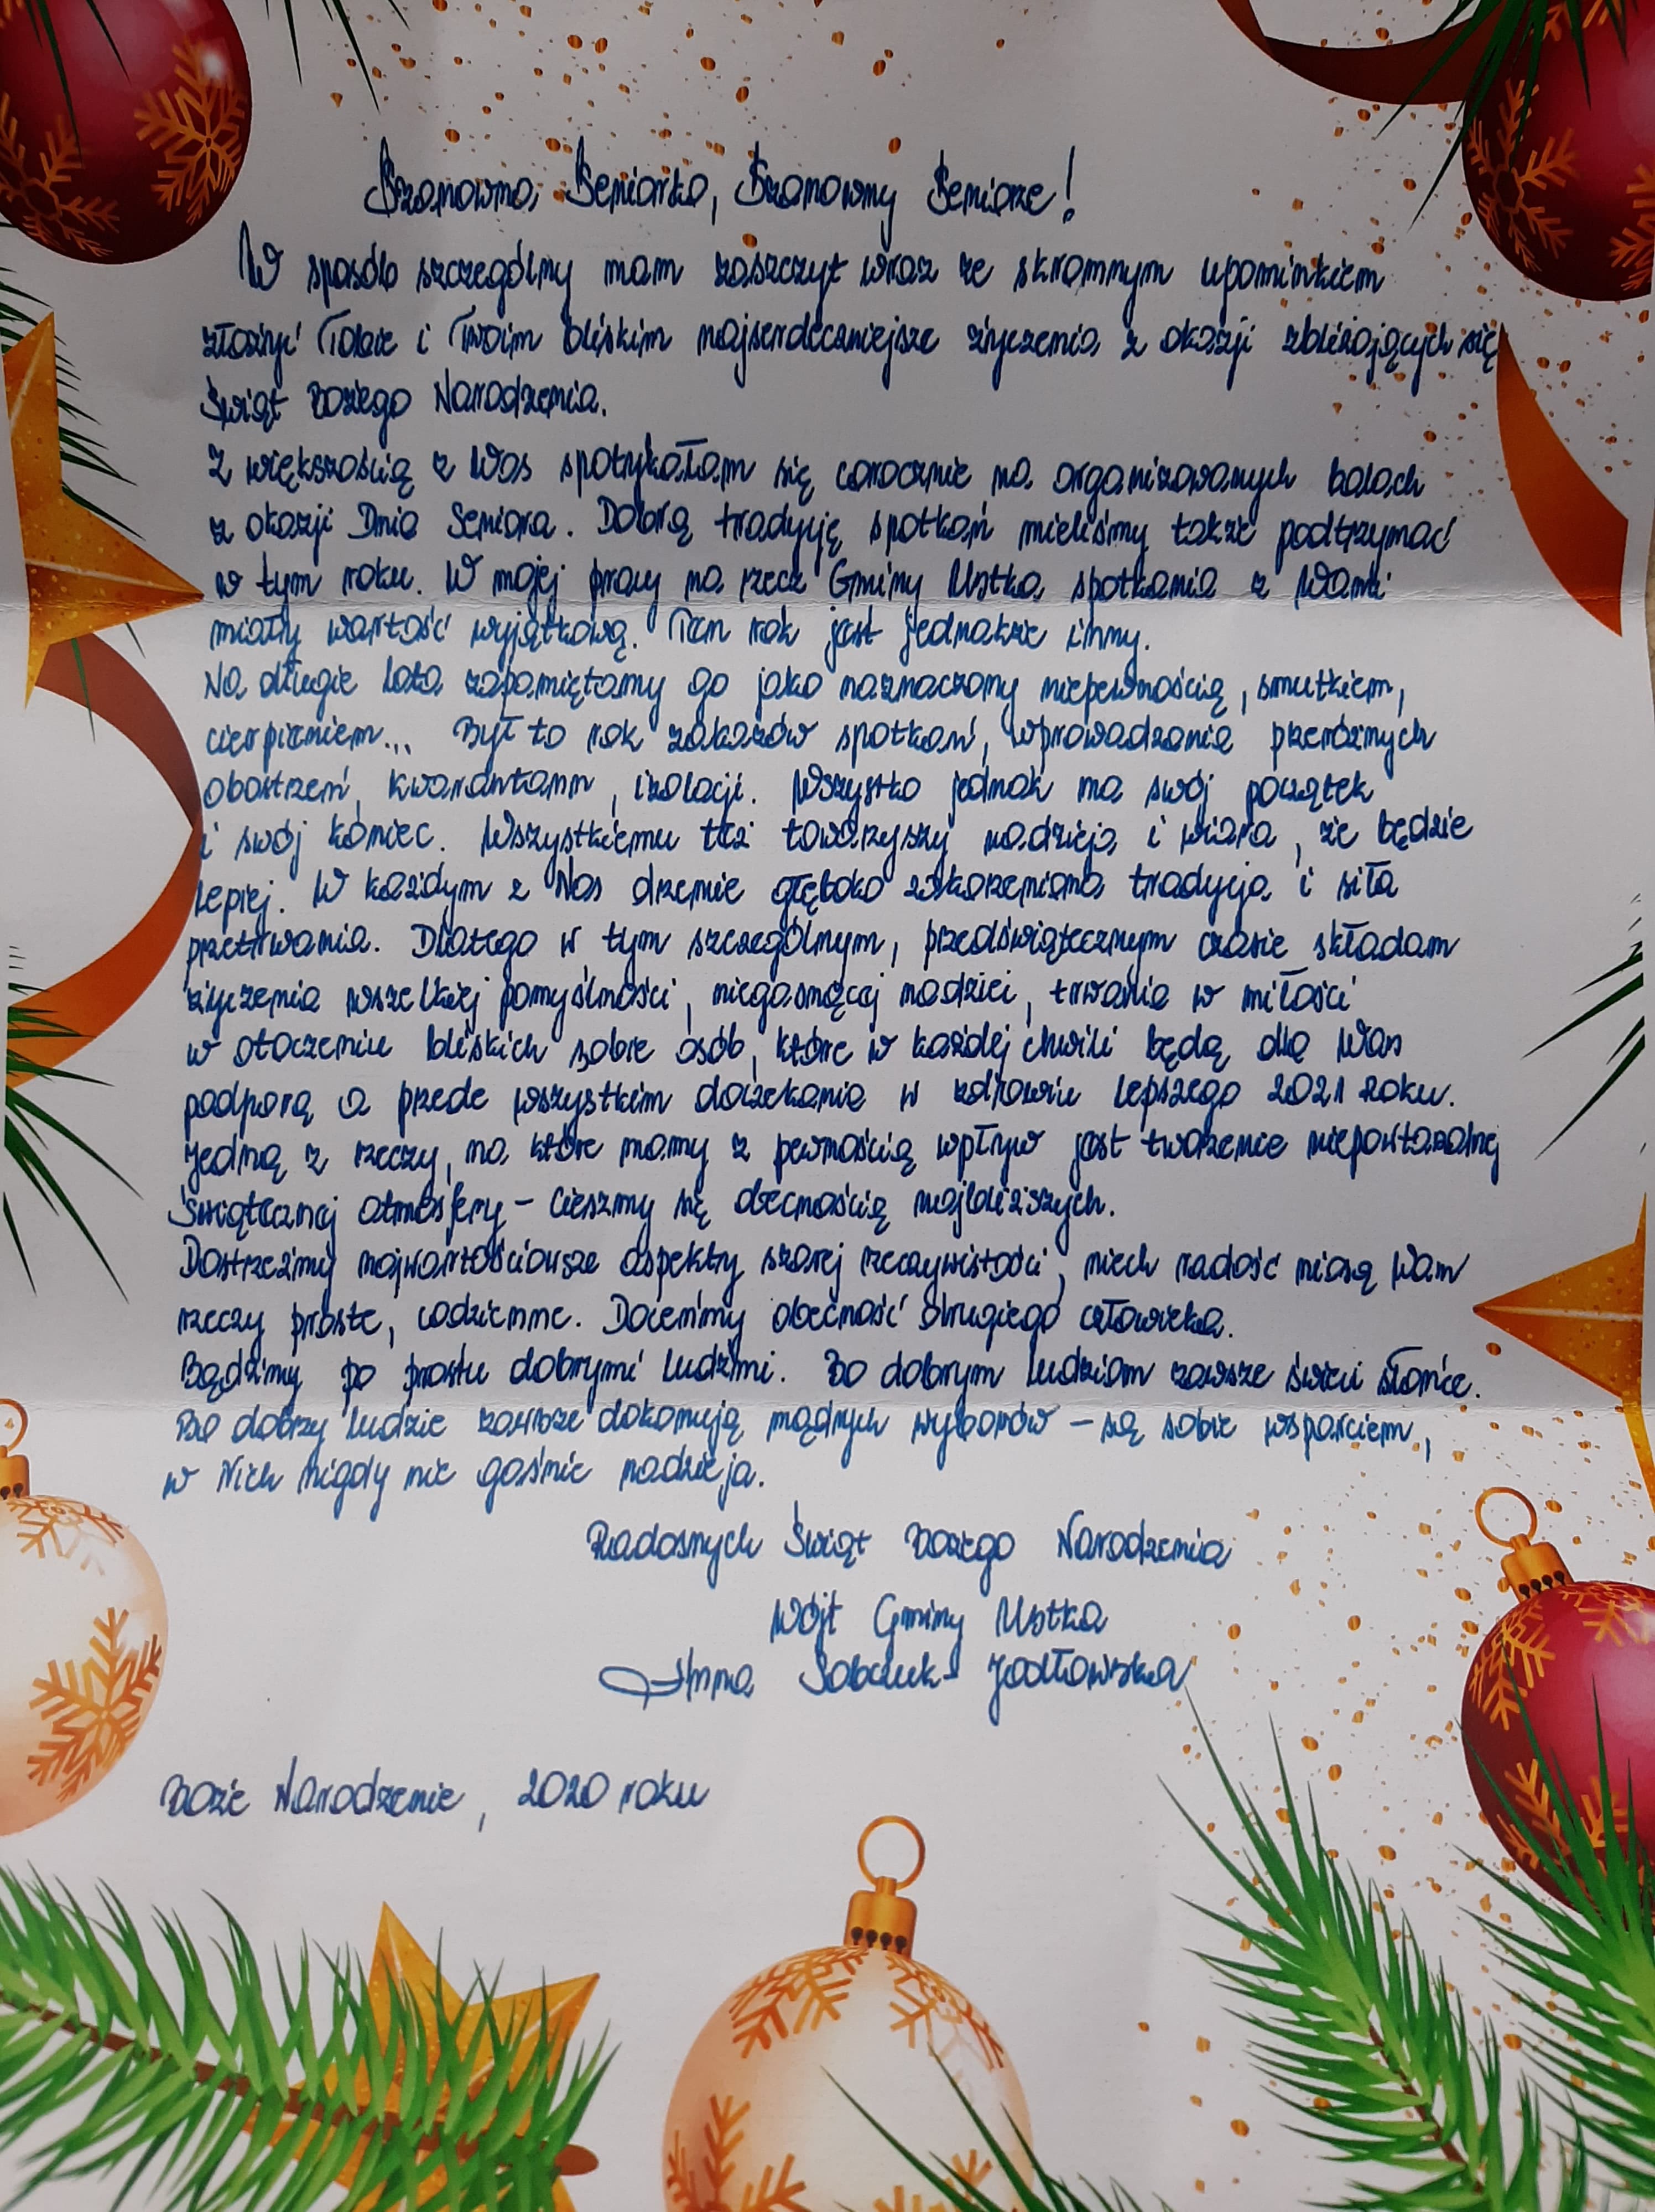 Szanowna Seniorko, Szanowny Seniorze!
W sposób szczególny mam zaszczyt wraz ze skromnym upominkiem
złożyć Tobie i Twoim bliskim najserdeczniejsze życzenia z okazji zbliżających się
Świąt Bożego Narodzenia.
Z większością z Was spotykałam się corocznie na organizowanych balach
z okazji Dnia Seniora. Dobrą tradycję spotkań mieliśmy także podtrzymać
w tym roku. W mojej pracy na rzecz Gminy Ustka, spotkania z Wami
miały wartość wyjątkową. Ten rok jest jednakże inny.
Na długie lata zapamiętamy go jako naznaczony niepewnością, smutkiem,
cierpieniem... Był to rok zakazów spotkań, wprowadzania przeróżnych
obostrzeń, kwarantann, izolacji. Wszystko jednak ma swój początek
i swój koniec. Wszystkiemu też towarzyszy nadzieja i wiara, że będzie
lepiej. W każdym z Nas drzemie głęboko zakorzeniona tradycja i siła
przetrwania. Dlatego w tym szczególnym, przedświątecznym czasie składam
życzenia wszelkiej pomyślności, niegasnącej nadziei, trwania w miłości
w otoczeniu bliskich sobie osób, które w każdej chwili będą dla Was
podporą a przede wszystkim doczekania w zdrowiu lepszego 2021 roku.
Jedną z rzeczy, na które mamy z pewnością wpływ jest tworzenie niepowtarzalnej
Świątecznej atmosfery - cieszmy się obecnością najbliższych.
Dostrzeżmy najwartościowsze aspekty szarej rzeczywistości, niech radość niosą Wam
rzeczy proste, codzienne. Doceńmy obecność drugiego człowieka.
Bądźmy po prostu dobrymi ludźmi. Bo dobrym ludziom zawsze świeci słońce.
Bo dobrzy ludzie zawsze dokonują mądrych wyborów - są sobie wsparciem,
w Nich nigdy nie gaśnie nadzieja.
Radosnych Świąt Bożego Narodzenia
Wójt Gminy Ustka
Anna Sobczuk-Jodłowska
Boże Narodzenie, 2020 roku